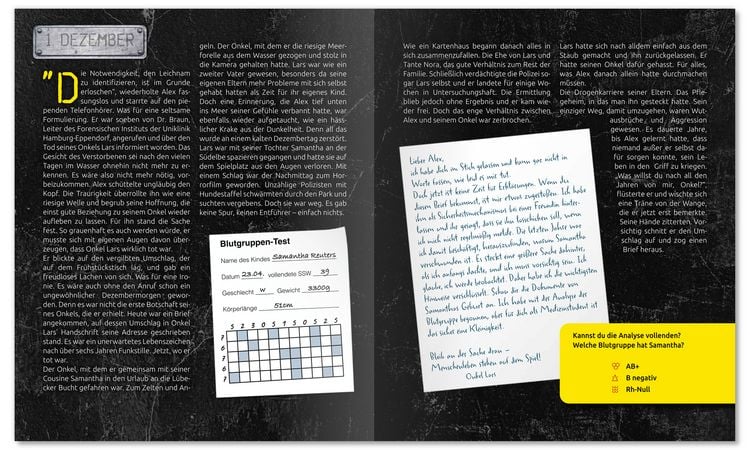 1 DEZEMBER
"Die Notwendigkeit, den Leichnam
zu identifizieren, ist im Grunde
erloschen", wiederholte Alex fas-
sungslos und starrte auf den pie-
penden Telefonhörer. Was für eine seltsame
Formulierung. Er war soeben von Dr. Braun,
Leiter des Forensischen Instituts der Uniklinik
Hamburg-Eppendorf, angerufen und über den
Tod seines Onkels Lars informiert worden. Das
Gesicht des Verstorbenen sei nach den vielen
Tagen im Wasser ohnehin nicht mehr zu er-
kennen. Es wäre also nicht mehr nötig, vor-
beizukommen. Alex schüttelte ungläubig den
Kopf. Die Traurigkeit überrollte ihn wie eine
riesige Welle und begrub seine Hoffnung, die
einst gute Beziehung zu seinem Onkel wieder
aufleben zu lassen. Für ihn stand die Sache
fest. So grauenhaft es auch werden würde, er
musste sich mit eigenen Augen davon über-
zeugen, dass Onkel Lars wirklich tot war.
Er blickte auf den vergilbten Umschlag, der
auf dem Frühstückstisch lag, und gab ein
freudloses Lachen von sich. Was für eine Iro-
nie. Es wäre auch ohne den Anruf schon ein
ungewöhnlicher Dezembermorgen gewor-
den. Denn es war nicht die erste Botschaft sei-
nes Onkels, die er erhielt. Heute war ein Brief
angekommen, auf dessen Umschlag in Onkel
Lars' Handschrift seine Adresse geschrieben
stand. Es war ein unerwartetes Lebenszeichen
nach über sechs Jahren Funkstille. Jetzt, wo er
tot war.
Der Onkel, mit dem er gemeinsam mit seiner
Cousine Samantha in den Urlaub an die Lübe-
cker Bucht gefahren war. Zum Zelten und An-
geln. Der Onkel, mit dem er die riesige Meer-
forelle aus dem Wasser gezogen und stolz in
die Kamera gehalten hatte. Lars war wie ein
zweiter Vater gewesen, besonders da seine
eigenen Eltern mehr Probleme mit sich selbst
gehabt hatten als Zeit für ihr eigenes Kind.
Doch eine Erinnerung, die Alex tief unten
ins Meer seiner Gefühle verbannt hatte, war
ebenfalls wieder aufgetaucht, wie ein häss-
licher Krake aus der Dunkelheit. Denn all das
wurde an einem kalten Dezembertag zerstört.
Lars war mit seiner Tochter Samantha an der
Südelbe spazieren gegangen und hatte sie auf
dem Spielplatz aus den Augen verloren. Mit
einem Schlag war der Nachmittag zum Hor-
rorfilm geworden. Unzählige Polizisten mit
Hundestaffel schwärmten durch den Park und
suchten vergebens. Doch sie war weg. Es gab
keine Spur, keinen Entführer – einfach nichts.
Blutgruppen-Test
Name des Kindes Samantha Reuters
Datum 23.04. vollendete SSW 39
Geschlecht w Gewicht 3300g
Körperlänge 51cm
Wie ein Kartenhaus begann danach alles in
sich zusammenzufallen. Die Ehe von Lars und
Tante Nora, das gute Verhältnis zum Rest der
Familie. Schließlich verdächtigte die Polizei so-
gar Lars selbst und er landete für einige Wo-
chen in Untersuchungshaft. Die Ermittlung
blieb jedoch ohne Ergebnis und er kam wie-
der frei. Doch das enge Verhältnis zwischen
Alex und seinem Onkel war zerbrochen.
Lieber Alex,
ich habe dich im Stich gelassen und kann gar nicht in
Worte fassen, wie leid es mir tut.
Doch jetzt ist keine Zeit für Erklärungen. Wenn du
diesen Brief bekommst, ist mir etwas zugestoßen. Ich habe
ihn als Sicherheitsmechanismus bei einer Freundin hinter-
lassen und die gesagt, dass sie ihn losschicken soll, wenn
ich mich nicht regelmäßig melde. Die letzten Jahre war
ich damit beschäftigt, herauszufinden, warum Samantha
verschwunden ist. Es steckt eine größere Sache dahinter,
als ich anfangs dachte, und ich muss vorsichtig sein. Ich
glaube, ich werde beobachtet. Daher habe ich die wichtigsten
Hinweise verschlüsselt. Schau dir die Dokumente von
Samanthas Geburt an. Ich habe mit der Analyse der
Blutgruppe begonnen, aber für dich als Medizinstudent ist
das sicher eine Kleinigkeit.
Bleib an der Sache dran –
Menschenleben stehen auf dem Spiel!
Onkel Lars
Lars hatte sich nach alldem einfach aus dem
Staub gemacht und ihn zurückgelassen. Er
hatte seinen Onkel dafür gehasst. Für alles,
was Alex danach allein hatte durchmachen
müssen.
Die Drogenkarriere seiner Eltern. Das Pfle-
geheim, in das man ihn gesteckt hatte. Sein
einziger Weg, damit umzugehen, waren Wut-
ausbrüche und Aggression
gewesen. Es dauerte Jahre,
bis Alex gelernt hatte, dass
niemand außer er selbst da-
für sorgen konnte, sein Le-
ben in den Griff zu kriegen.
„Was willst du nach all den
Jahren von mir, Onkel?",
flüsterte er und wischte sich
eine Träne von der Wange,
die er jetzt erst bemerkte.
Seine Hände zitterten. Vor-
sichtig schnitt er den Um-
schlag auf und zog einen
Brief heraus.
Kannst du die Analyse vollenden?
Welche Blutgruppe hat Samantha?
AB+
B negativ
Rh-Null